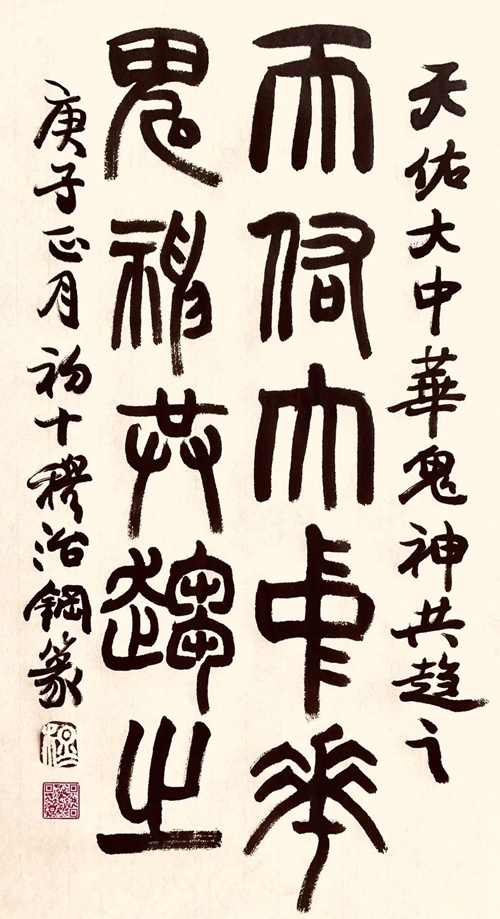 天佑大中華鬼神共趋之
天佑大中華
鬼神共趨之
庚子正月初十穆治鋼篆
穆